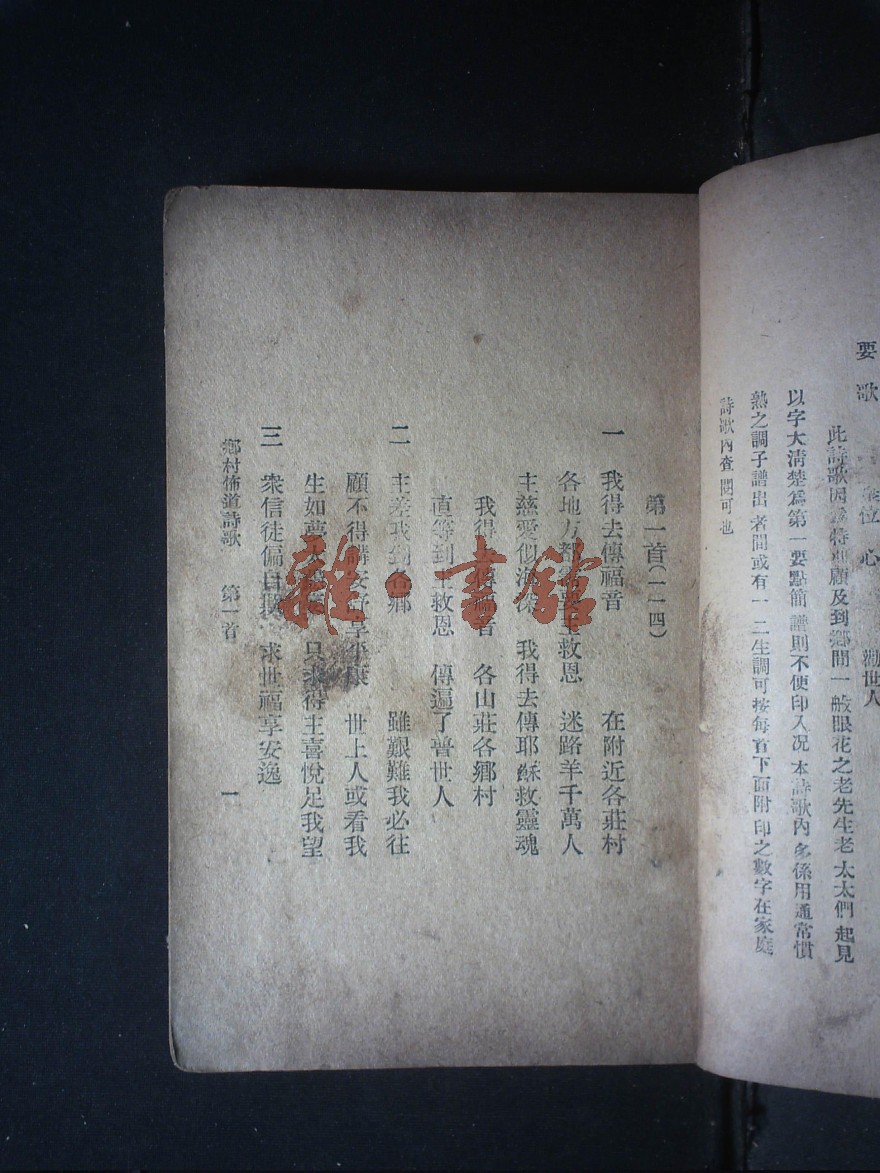 要 歌 心 勸世人
此詩歌因爲特 顧及到鄉間一般眼花之老先生老太太們起見
以字大清楚爲第一要點簡譜則不便印入况本詩歌內多係用通常慣
熟之調子譜出者間或有一二生調可按每首下面附印之數字在家庭
詩歌內查閱可也
第一首(一一四)
一 我得去傳福音 在附近各莊村
各地方都 要主救恩 迷路羊千萬人
主慈愛似海深 我得去傳耶穌救靈魂
我得去傳福音 各山莊各鄉村
直等到 救恩 傳遍了普世人
二 主差我到各鄉 雖艱難我必往
顧不得講安舒享平康 世上人或看我
生如夢 只求得主喜悅足我望
三 衆信徒偏自 求世福享安逸
鄉村佈道詩歌 第一首 一
雜·書館